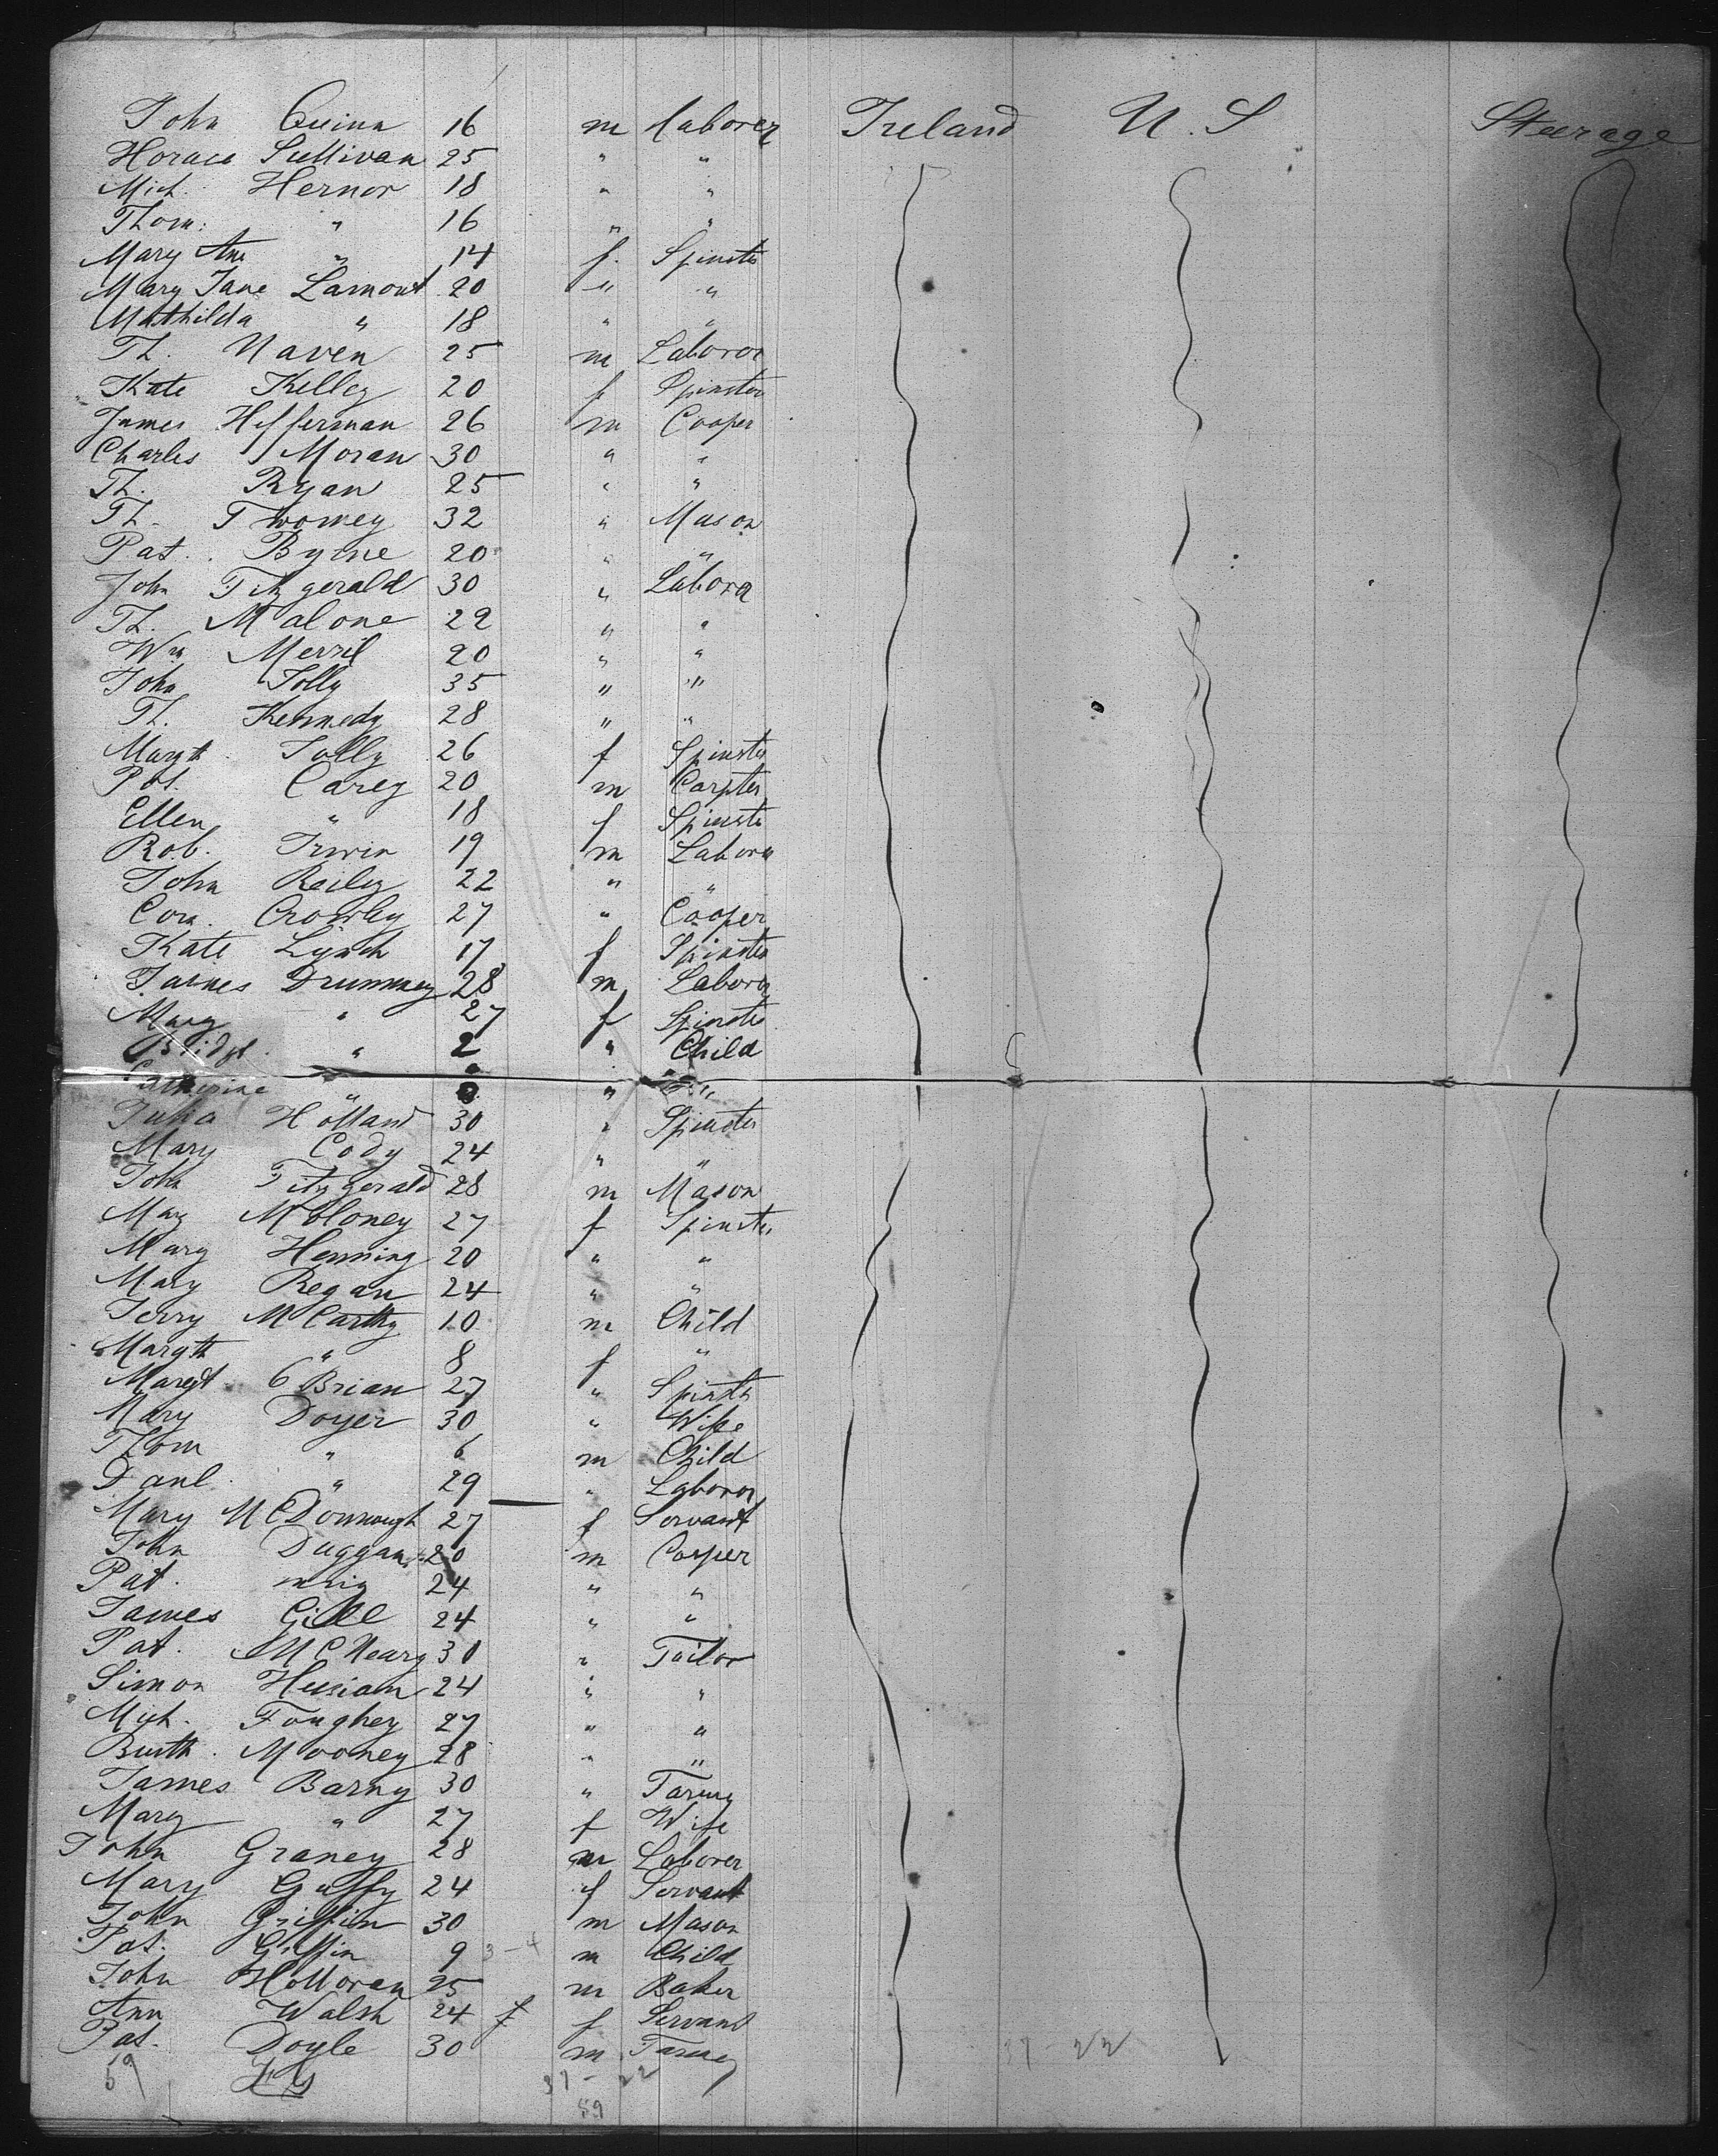 John Quinn 16 m Laborer Ireland U.S Steerage
Horace Sullivan 25 " "
Mich. Hernor 18 " "
Thom. " 16 " "
Mary Ann " 14 f. Spinster
Mary Jane Lamont 20 " "
Mathilda " 18 " "
Th. Naven 25 m Laborer
Kate Kelley 20 f Spinster
James Hefferman 26 m Cooper
Charles Moran 30 " "
Th. Ryan 25 " "
Th. Twomey 32 " Mason
Pat. Byrne 20 " "
John Fitzgerald 30 " Labora
Th. Malone 22 " "
Wm Merril 20 " "
John Jolly 35 " "
Th. Kennedy 28 " "
Margt. Jolly 26 f Spinster
Pat. Carey 20 m Carpter
Ellen " 18 f Spinster
Rob. Irwin 19 m Labora
John Reiley 22 " "
Corn. Crowley 27 " Cooper
Kate Lynch 17 f Spinster
James Drummey 28 m Labora
Mary " 27 f Spinster
Bridgt. " 2 " Child
Catherine " " "
Julia Holland 30 " Spinster
Mary Cody 24 " "
John Fitzgerald 28 m Mason
Mary Moloney 27 f Spinster
Mary Henning 20 " "
Mary Regan 24 " "
Jerry McCarthy 10 m Child
Margth " 8 f "
Maregt O'Brian 27 " Spinster
Mary Doyer 30 " Wife
Thom " 6 m Child
Danl. " 29 " Laborer
Mary McDonnough 27 f Servant
John Duggan 20 m Cooper
Pat. 24 " "
James Gill 24 " "
Pat. McNeary 30 " Tailor
Simon Husian 24 " "
Mich. Foughey 27 " "
Barth. Mooney 28 " "
James Barny 30 " Farmer
Mary " 27 f Wife
John Graney 28 m Laborer
Mary Guffy 24 f Servant
John Griffin 30 m Mason
Pat. Griffin 9 3-4 m Child
John Holloran 25 m Baker
Ann Walsh 24 f f Servant
Pat. Doyle 30 m Farmer 37-22
59 37-22
59